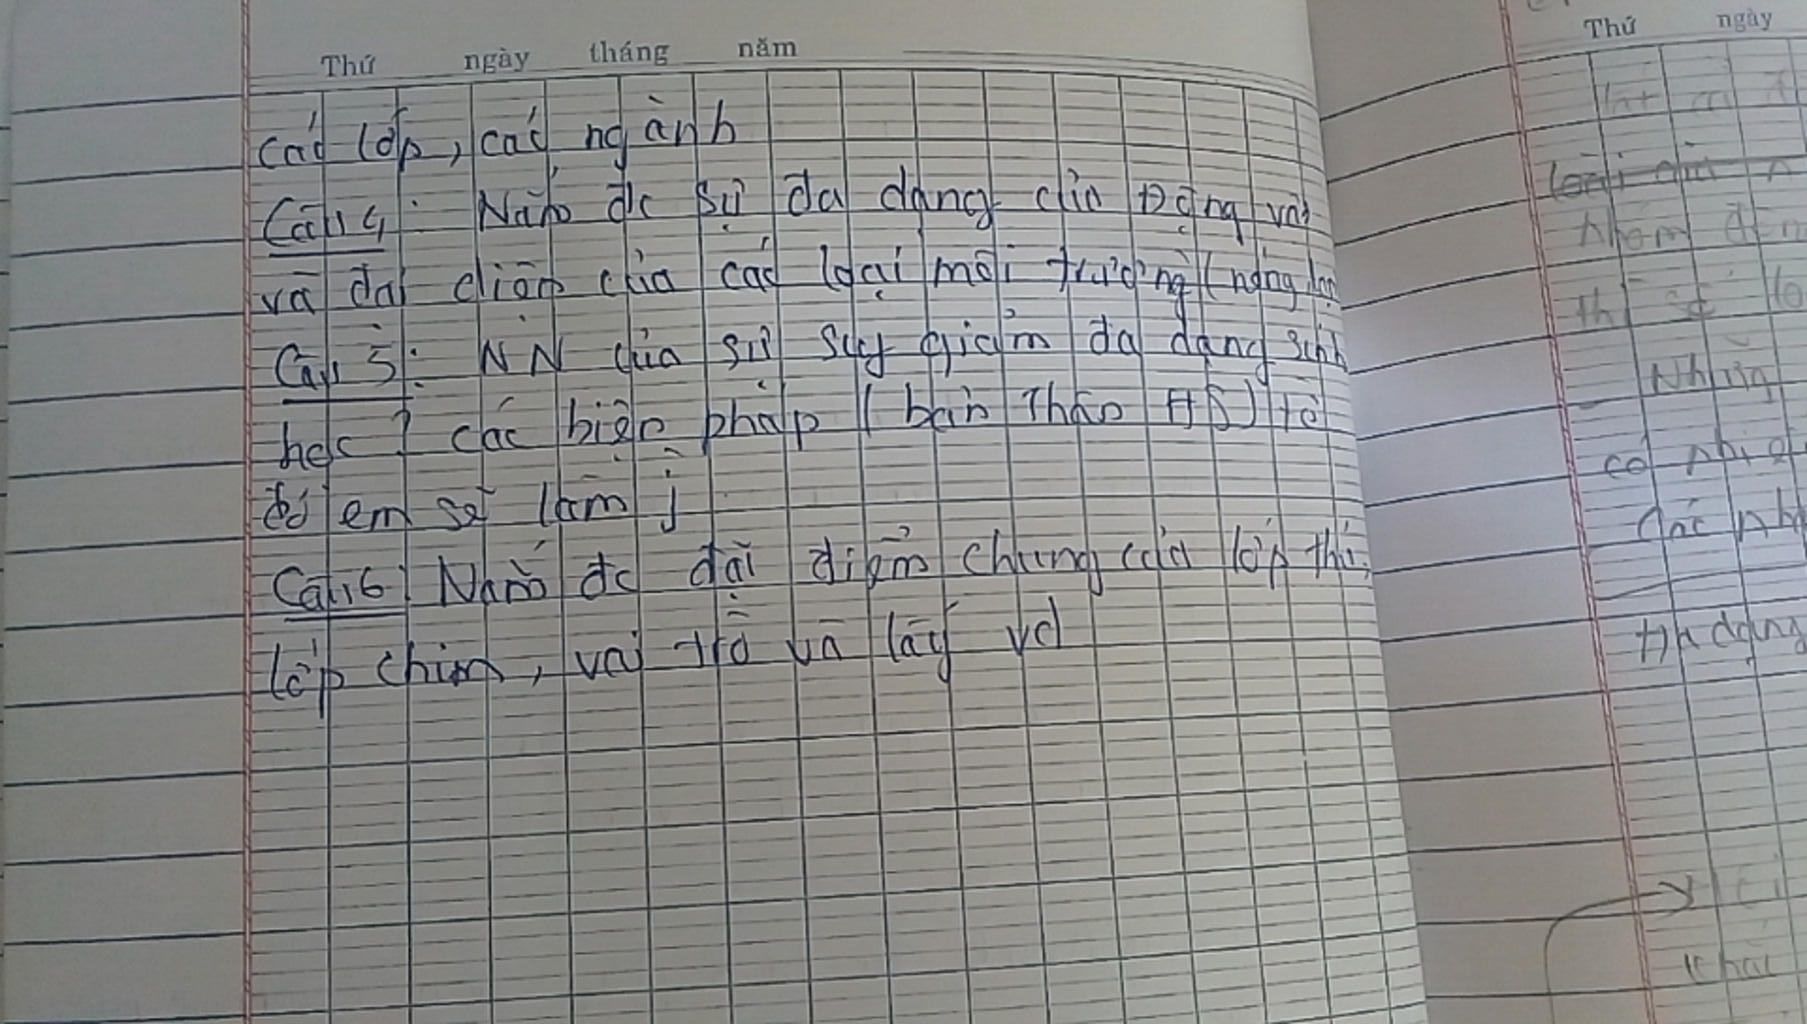 Thứ ngày tháng năm
các lớp, các ngành
Câu 4: Nắm đc sự đa dạng của Động vật
và đại diện của các loại môi trường (nóng, lạnh
Câu 5: NN của sự suy giảm đa dạng sinh
học? các biện pháp (bản thân HS) từ
đó em sẽ làm j
Câu 6: Nắm đc đặc điểm chung của lớp thú,
lớp chim, vai trò và lấy vd
Thứ ngày
Nhóm
Những
có
các
đa dạng
khác